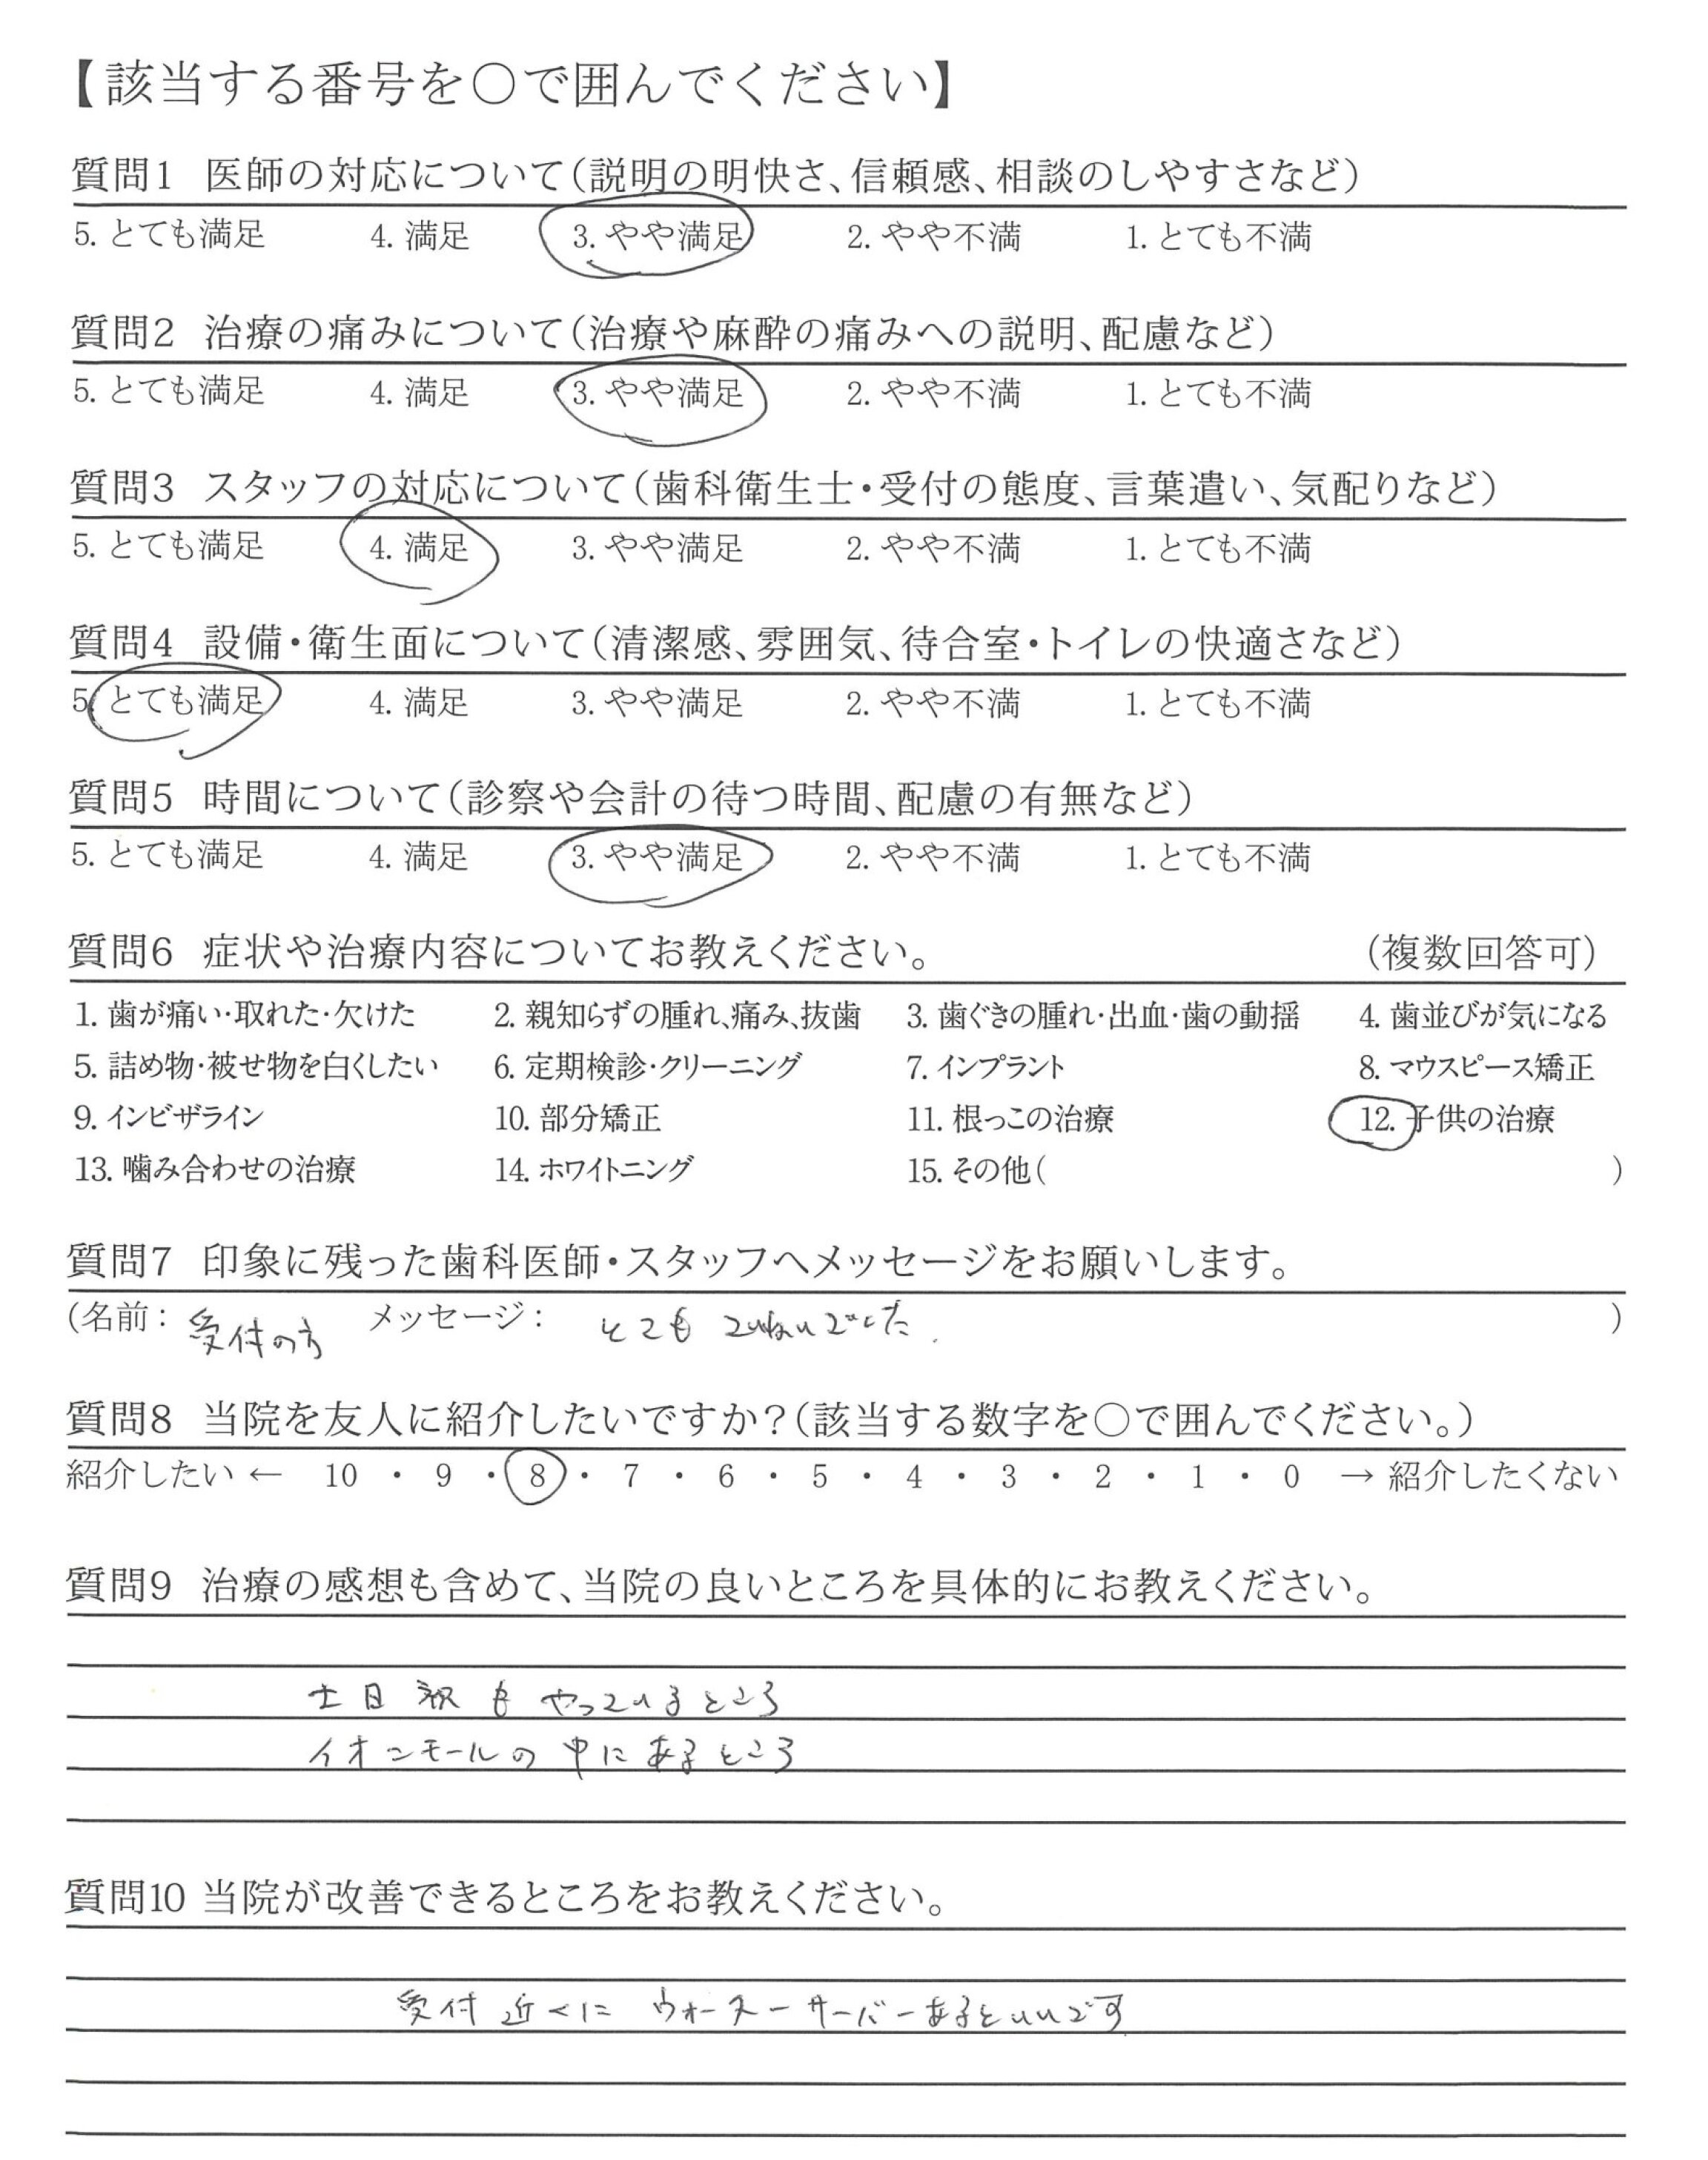 【該当する番号を○で囲んでください】
質問1 医師の対応について(説明の明快さ、信頼感、相談のしやすさなど)
5. とても満足 4. 満足 3. やや満足 2. やや不満 1. とても不満
質問2 治療の痛みについて(治療や麻酔の痛みへの説明、配慮など)
5. とても満足 4. 満足 3. やや満足 2. やや不満 1. とても不満
質問3 スタッフの対応について(歯科衛生士・受付の態度、言葉遣い、気配りなど)
5. とても満足 4. 満足 3. やや満足 2. やや不満 1. とても不満
質問4 設備・衛生面について(清潔感、雰囲気、待合室・トイレの快適さなど)
5. とても満足 4. 満足 3. やや満足 2. やや不満 1. とても不満
質問5 時間について(診察や会計の待つ時間、配慮の有無など)
5. とても満足 4. 満足 3. やや満足 2. やや不満 1. とても不満
質問6 症状や治療内容についてお教えください。 (複数回答可)
1. 歯が痛い・取れた・欠けた 2. 親知らずの腫れ、痛み、抜歯 3. 歯ぐきの腫れ・出血・歯の動揺 4. 歯並びが気になる
5. 詰め物・被せ物を白くしたい 6. 定期検診・クリーニング 7. インプラント 8. マウスピース矯正
9. インビザライン 10. 部分矯正 11. 根っこの治療 12. 子供の治療
13. 噛み合わせの治療 14. ホワイトニング 15. その他( )
質問7 印象に残った歯科医師・スタッフへメッセージをお願いします。
(名前: 受付の方 メッセージ: とても ていねいでした. )
質問8 当院を友人に紹介したいですか?(該当する数字を○で囲んでください。)
紹介したい ← 10 ・ 9 ・ 8 ・ 7 ・ 6 ・ 5 ・ 4 ・ 3 ・ 2 ・ 1 ・ 0 → 紹介したくない
質問9 治療の感想も含めて、当院の良いところを具体的にお教えください。
土日祝もやっているところ
イオンモールの中にあるところ
質問10 当院が改善できるところをお教えください。
受付近くに ウォーターサーバーあるといいです